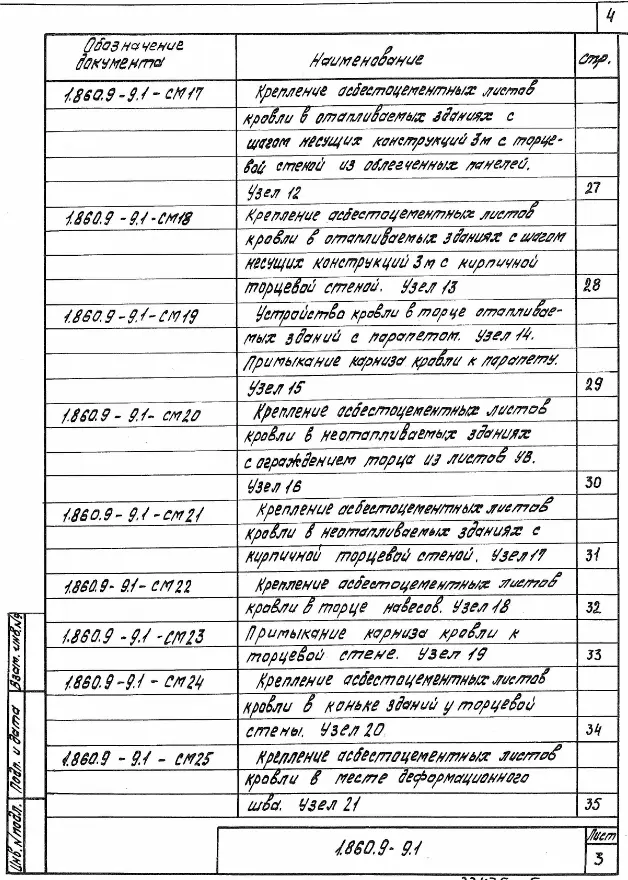 4
Обозначение документа Наименование Стр.
1.860.9-9.1-СМ17 Крепление асбестоцементных листов
кровли в отапливаемых зданиях с
шагом несущих конструкций 3м с торце-
вой стеной из облегченных панелей.
Узел 12 27
1.860.9-9.1-СМ18 Крепление асбестоцементных листов
кровли в отапливаемых зданиях с шагом
несущих конструкций 3м с кирпичной
торцевой стеной. Узел 13 28
1.860.9-9.1-СМ19 Устройство кровли в торце отапливае-
мых зданий с парапетом. Узел 14.
Примыкание карниза кровли к парапету.
Узел 15 29
1.860.9-9.1-СМ20 Крепление асбестоцементных листов
кровли в неотапливаемых зданиях
с ограждением торца из листов УВ.
Узел 16 30
1.860.9-9.1-СМ21 Крепление асбестоцементных листов
кровли в неотапливаемых зданиях с
кирпичной торцевой стеной. Узел 17 31
1.860.9-9.1-СМ22 Крепление асбестоцементных листов
кровли в торце навесов. Узел 18 32
1.860.9-9.1-СМ23 Примыкание карниза кровли к
торцевой стене. Узел 19 33
1.860.9-9.1-СМ24 Крепление асбестоцементных листов
кровли в коньке зданий у торцевой
стены. Узел 20 34
1.860.9-9.1-СМ25 Крепление асбестоцементных листов
кровли в месте деформационного
шва. Узел 21 35
Взам. инв.№
Подп. и дата
Инв.№подл.
1.860.9-9.1
Лист
3